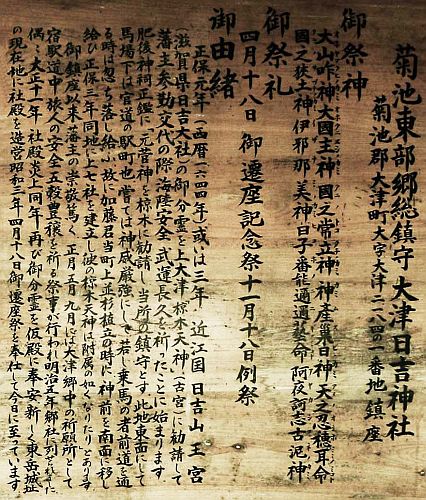 菊池東部郷総鎮守大津日吉神社
菊池郡大津町大字大津一二八四の一番地鎮座
御祭神
大山咋神大國主神國之常立神神産巣日神天之忍穂耳命
國之狭土神伊邪那美神日子番能邇邇藝命阿夜訶志古泥神
御祭礼
四月十八日御遷座記念祭十一月十八日例祭
御由緒
正保元年(西暦一六四四年)或いは三年近江国日吉山王宮
滋賀県日吉大社の御分霊を上大津椋木天神(古宮)に勧請して
藩主参勤交代の際海陸安全武運長久を祈ったことに始まります
肥後神祠正鑑に「元宮神を椋木に勧請し当所の鎮守とす此地東面にして
馬場下は官道の駅町也嘗ては神威厳強にして若し乗馬の者前道を通
る時は忽ち落し給ふ故に加藤君当町上並杉植立の時に神前を南面に移し
給ひ正保三年同地に上七社を建立し彼の椋木天神は附属の如くなりたりとあります
御鎮座以来藩主の崇敬篤く正月五月九月には大津郷中の祈願所として
宿駅道中旅人の安全五穀豊穣を祈る祭事が行われ明治五年郷社に列せられました
偶々大正十一年社殿炎上同年再び御分霊を仮殿に奉安新しく東岳城址
の現在地に社殿を造営昭和三年四月十八日御遷座祭を奉仕して今日に至っています